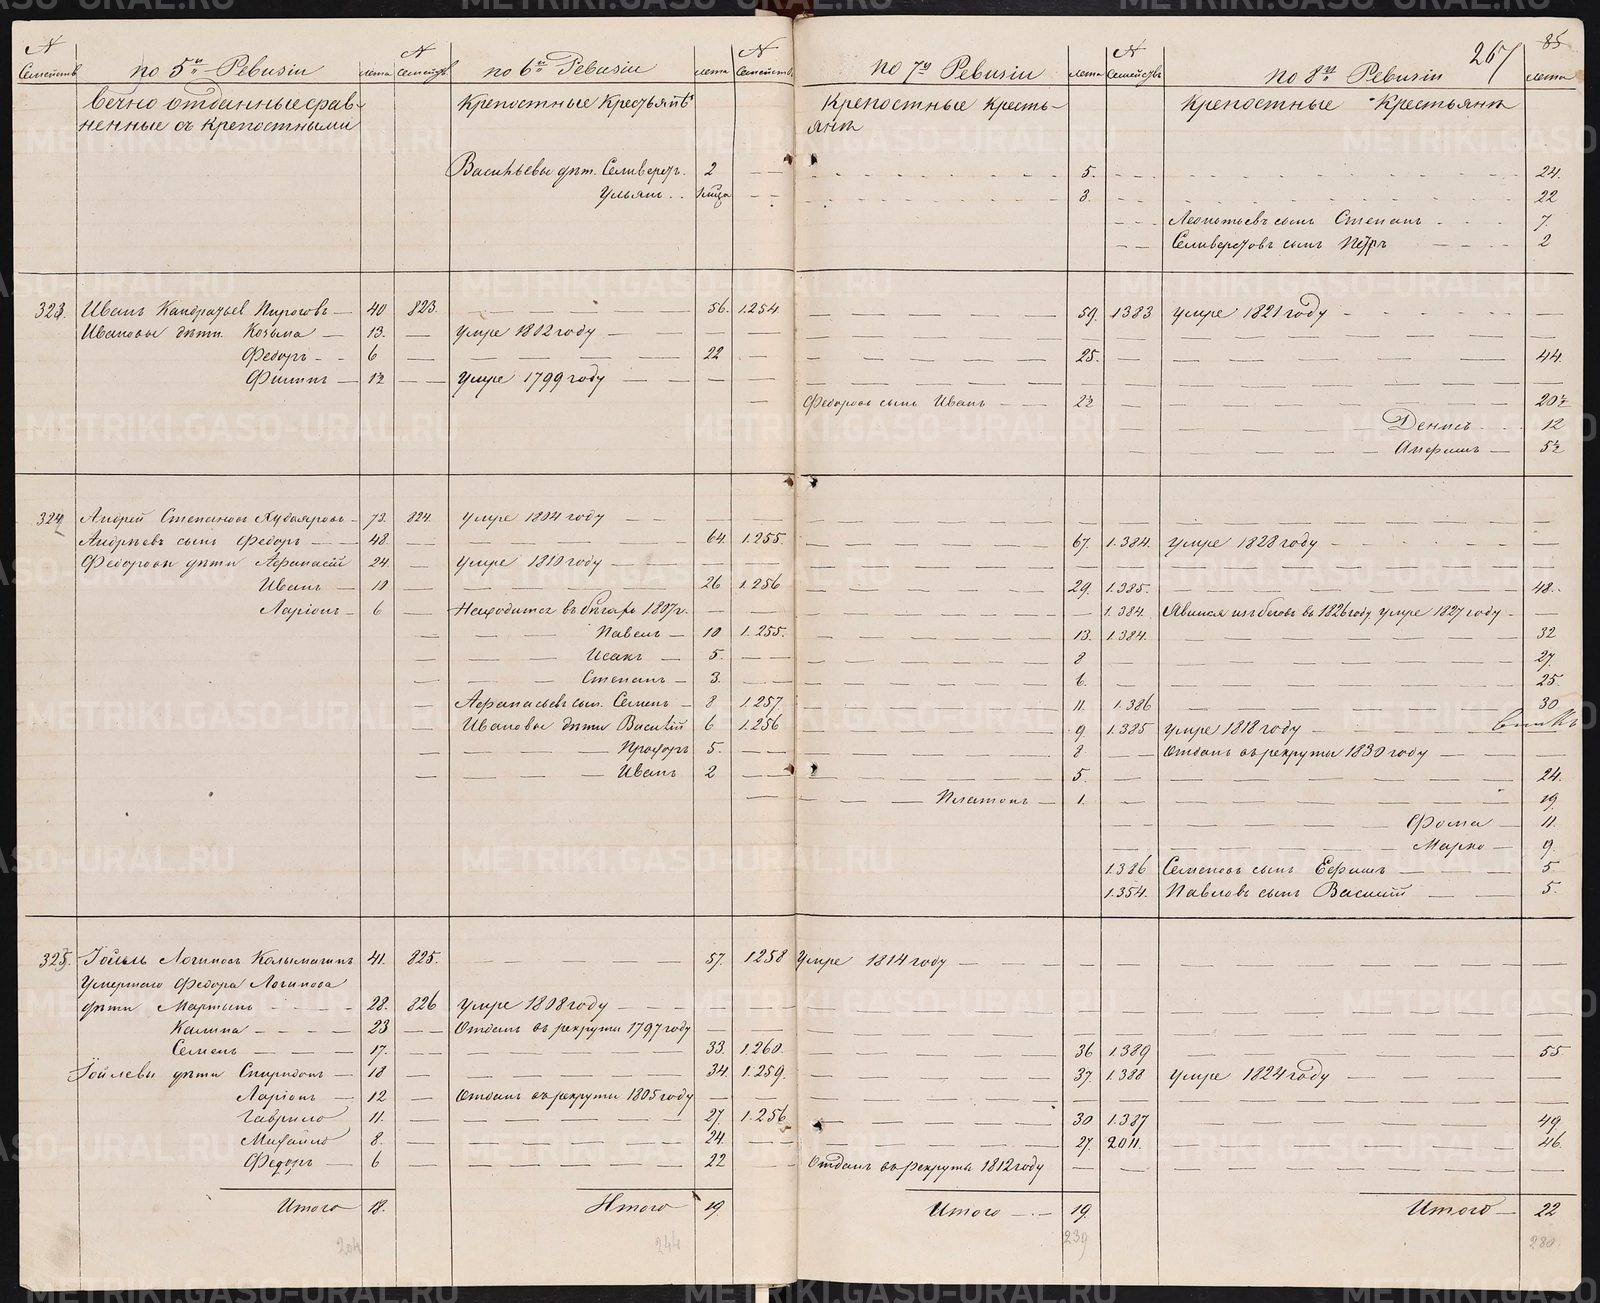 267 85
№ Семействъ по 5й Ревизiи лета № Семейств по 6й Ревизiи лета № Семейств по 7й Ревизiи лета № Семействъ по 8й Ревизiи лета
вечно отданные срав- Крепостные Крестьянѣ Крепостные Кресть- Крепостные Крестьяня
ненные съ Крепостными янѣ
Васильевы дѣт. Селиверстъ. 2 5. 24.
Ульянъ 3. 22
Леонтьевъ сынъ Степанъ 7.
Селиверстовъ сынъ Петръ 2
323. Иванъ Кандратьев Пироговъ 40 823. 56. 1.254. 59. 1383 умре 1821 году
Ивановы дѣти Козьма 13. умре 1802 году
Федоръ 6 22 25. 44.
Филипъ 1½ умре 1799 году
Федоровъ сынъ Иванъ 2½ 20½
Денисъ 12
Анфимъ 5½
324. Андрей Степановъ Кубаяровъ 73. 824. умре 1804 году
Андрѣевъ сынъ Федоръ 48. 64. 1.255. 67. 1.384. умре 1828 году
Федоровы дѣти Афанасiй 24. умре 1810 году
Иванъ 10 26 1.256 29. 1.385. 48.
Ларiонъ 6 Находится въ бѣгахъ 1807г. 1.384. Явился изъ бѣговъ въ 1826 году умре 1827 году
Павелъ 10 1.255. 13. 1.384. 32
Исакъ 5. 8 27.
Степанъ 3. 6. 25.
Афанасьевъ сын. Семенъ 8 1.257. 11. 1.386 30
Ивановы дѣти Василiй 6 1.256 9. 1.385 умре 1818 году
Прохоръ 5. 8 Отданъ въ рекруты 1830 году
Иванъ 2 5. 24.
Платонъ 1. 19.
Фома 11.
Марко 9.
1.386 Семеновъ сынъ Ефимъ 5.
1.354. Павловъ сынъ Василiй 5.
325. Iойль Логиновъ Колымагинъ 41. 825. 57. 1258 Умре 1814 году
Умершаго Федора Логинова
дѣти Мартынъ 28. 826 умре 1808 году
Калина 23 Отданъ въ рекруты 1797 году
Семенъ 17. 33. 1.260. 36 1.389 55
Iойлевы дѣти Спиридонъ 18 34. 1.259. 37. 1.388 умре 1824 году
Ларiонъ 12 Отданъ въ рекруты 1805 году
Гаврило 11. 27. 1.256. 30 1.387 49.
Михайло 8. 24. 27. 2011. 46.
Федоръ 6 22 Отданъ въ рекруты 1812 году
Итого 18. Итого 19. Итого 19. Итого 22
204 244 239 280
METRIKI.GASO-URAL.RU